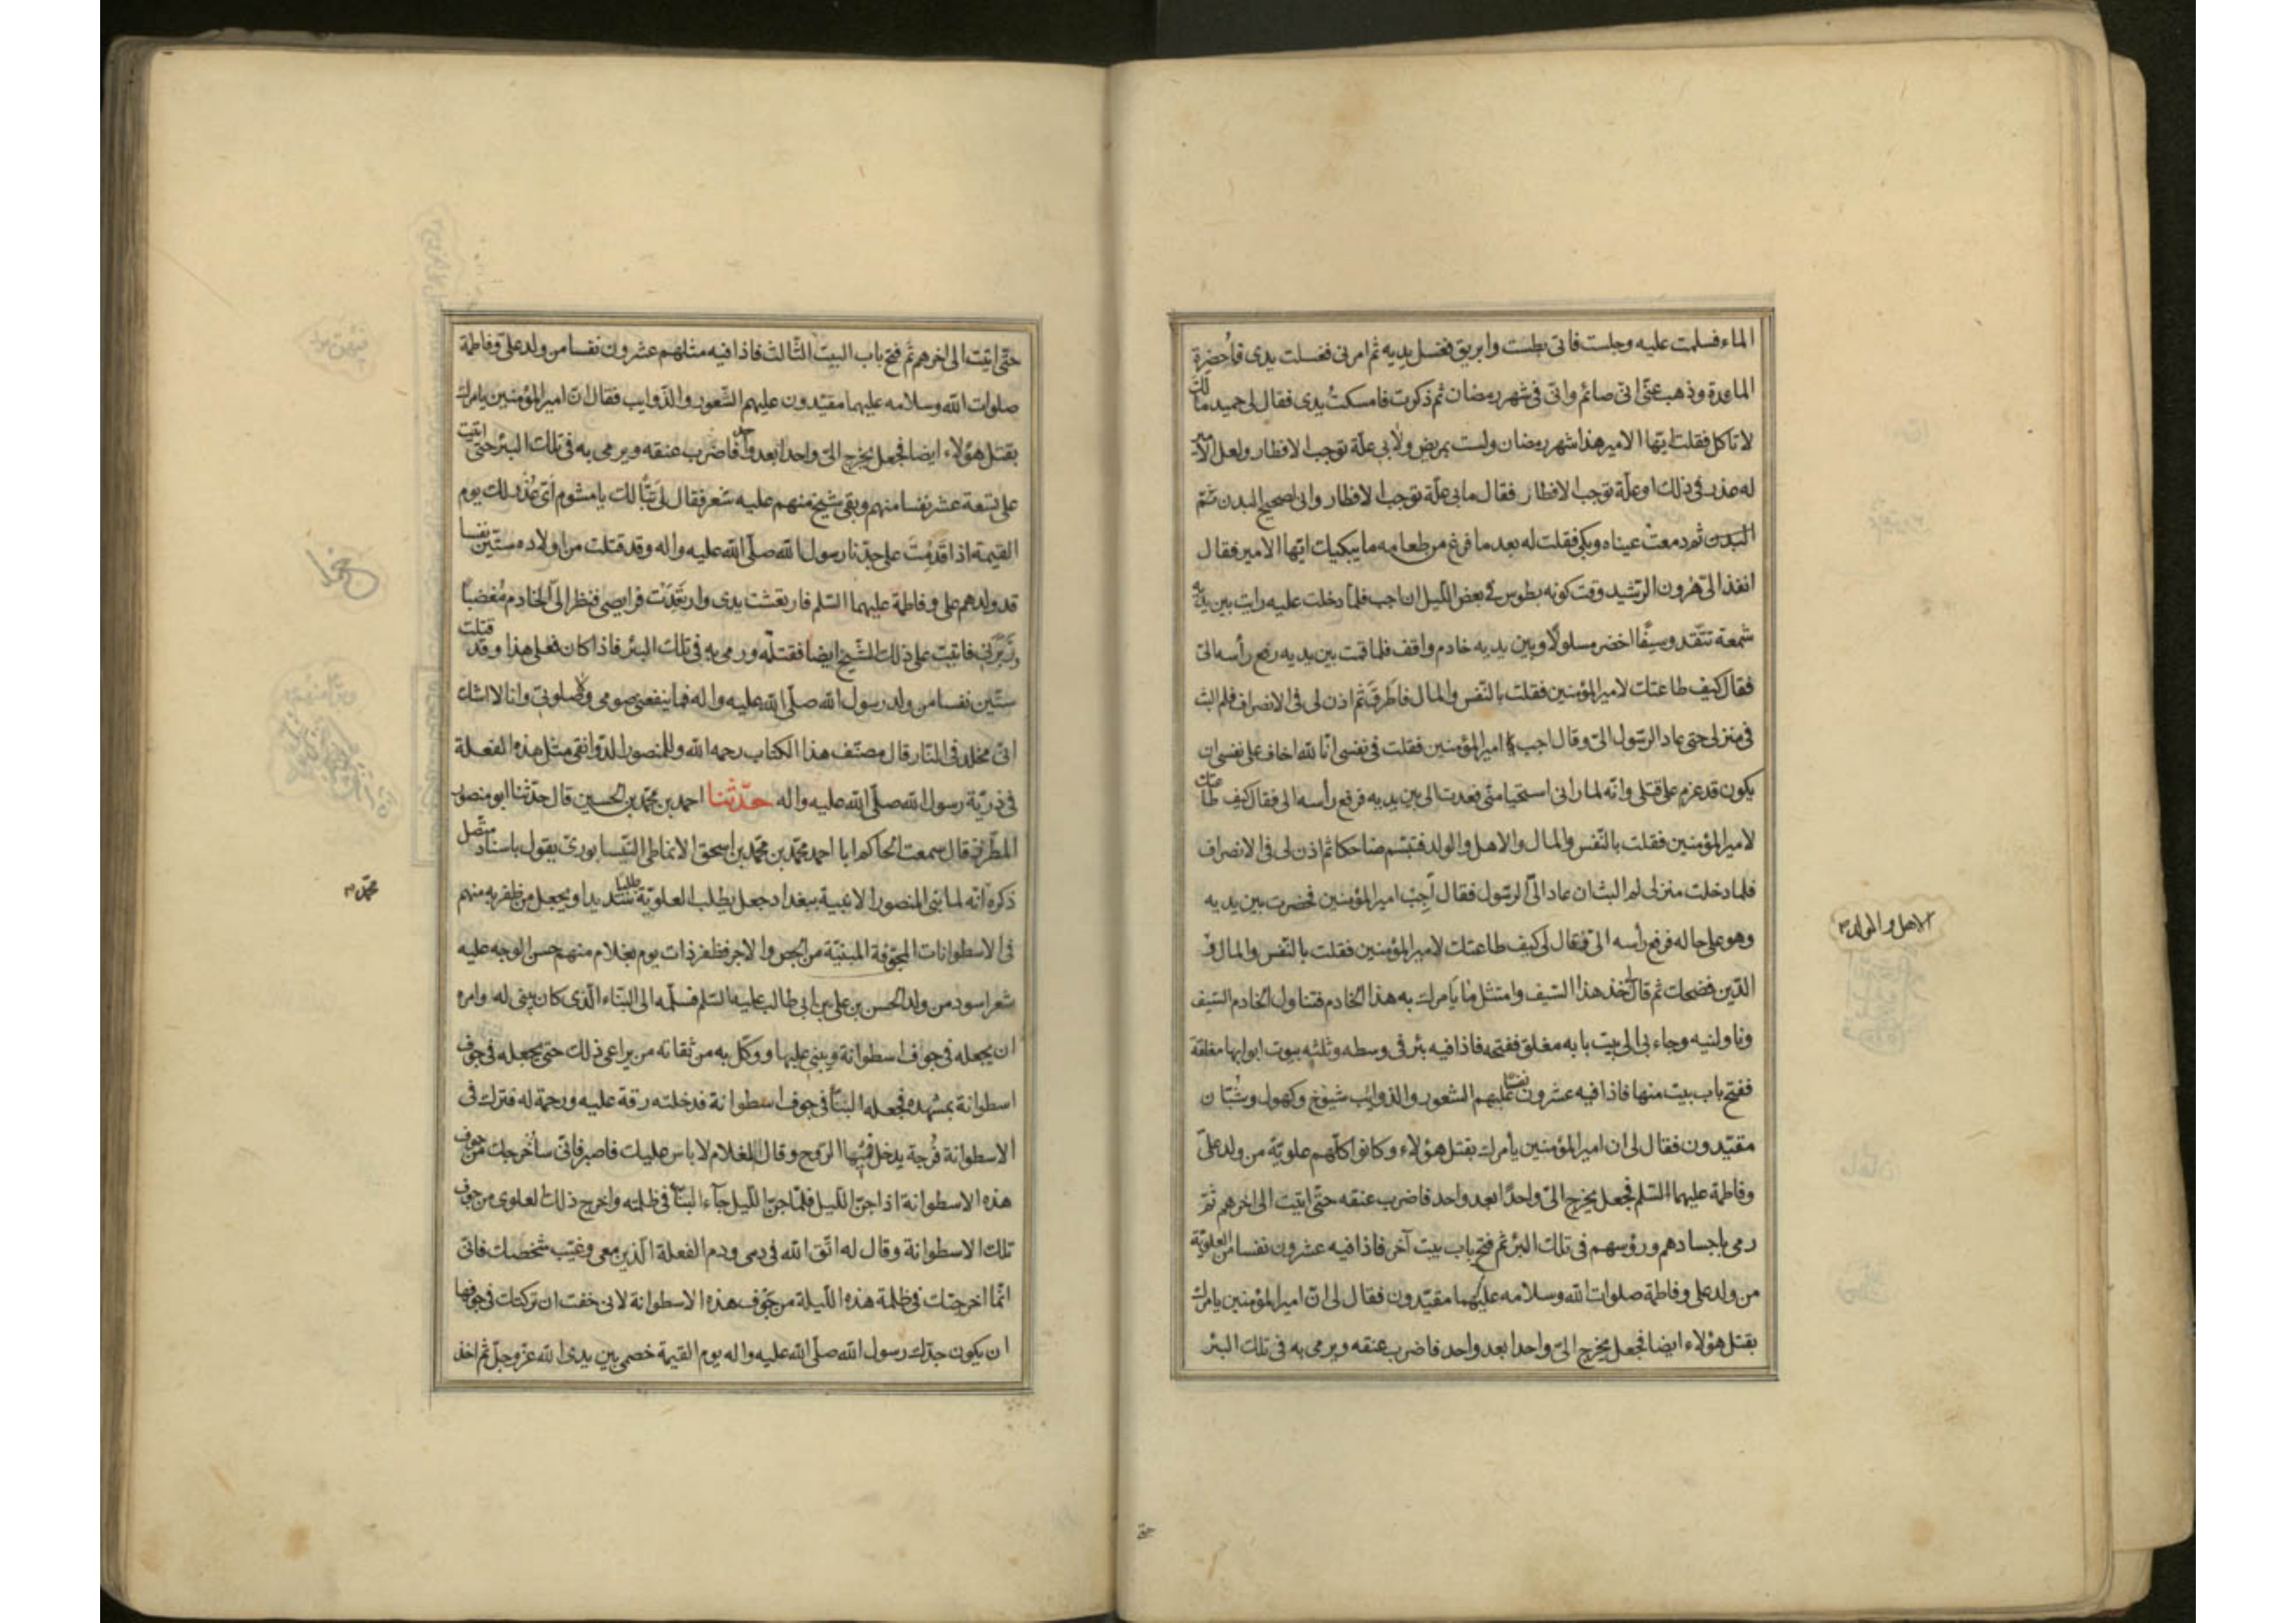 الماء فسلمت عليه وجلست فاتى بطست وابريق فغسل يديه ثم امرنى فغسلت يدى فاحضرة
المائدة وذهب عنّى انّى صائم وانّى فى شهر رمضان ثم ذكرت فامسكت يدى فقال لى حميد مالك
لا تاكل فقلت ايّها الامير هذا شهر رمضان ولست بمريض ولا بى علّة توجب الافطار ولعل الامير
له عذر فى ذلك او علّة توجب الافطار فقال ما بى علّة توجب الافطار وانى لصحيح البدن ثمّ
البدن ثم دمعت عيناه وبكى فقلت له بعد ما فرغ من طعامه ما يبكيك ايّها الامير فقال
انفذ الىّ هرون الرّشيد وقت كونه بطوس فى بعض اللّيل ان اجب فلمّا دخلت عليه رايت بين يديه
شمعة تتّقد وسيفًا اخضر مسلولا وبين يديه خادم واقف فلما قمت بين يديه رفع رأسه الىّ
فقال كيف طاعتك لامير المؤمنين فقلت بالنّفس والمال فاطرق ثم اذن لى فى الانصراف فلم البث
فى منزلى حتى عاد الرّسول الىّ وقال اجب امير المؤمنين فقلت فى نفسى انّا لله اخاف على نفسى ان
يكون قد عزم على قتلى وانّه لما رانى استحيا منّى فعدت الى بين يديه فرفع رأسه الى فقال كيف طاعتك
لامير المؤمنين فقلت بالنّفس والمال والاهل والولد فتبسّم ضاحكا ثم اذن لى فى الانصراف
فلما دخلت منزلى لم البث ان عاد الىّ الرّسول فقال اجب امير المؤمنين فحضرت بين يديه
وهو على حاله فرفع رأسه الىّ فقال لى كيف طاعتك لامير المؤمنين فقلت بالنّفس والمال و
الاهل والولد
الدّين فضحك ثم قال لى خذ هذا السّيف وامتثل ما يأمرك به هذا الخادم فتناول الخادم السّيف
وناولنيه وجاء بى الى بيت بابه مغلق ففتحه فاذا فيه بئر فى وسطه وثلثه بيوت ابوابها مغلقة
ففتح باب بيت منها فاذا فيه عشرون نفسا عليهم الشعور والذوايب شيوخ وكهول وشبّان
مقيّدون فقال لى ان امير المؤمنين يأمرك بقتل هؤلاء وكانوا كلّهم علويّة من ولد علىّ
وفاطمة عليهما السّلم فجعل يخرج الىّ واحدًا بعد واحد فاضرب عنقه حتّى اتيت الى اخرهم ثمّ
رمى باجسادهم ورؤسهم فى تلك البئر ثم فتح باب بيت آخر فاذا فيه عشرون نفسا من العلويّة
من ولد على وفاطمة صلوات الله وسلامه عليهما مقيّدون فقال لى انّ امير المؤمنين يامرك
بقتل هؤلاء ايضا فجعل يخرج الىّ واحدا بعد واحد فاضرب عنقه ويرمى به فى تلك البئر
حتى
حتّى اتيت الى اخرهم ثم فتح باب البيت الثّالث فاذا فيه مثلهم عشرون نفسا من ولد علىّ وفاطمة
صلوات الله وسلامه عليهما مقيّدون عليهم الشّعور والذّوايب فقال انّ امير المؤمنين يامرك
بقتل هؤلاء ايضا فجعل يخرج الىّ واحدا بعد واحد فاضرب عنقه ويرمى به فى تلك البئر حتّى اتيت
على تسعة عشر نفسا منهم وبقى شيخ منهم عليه شعر فقال لى تبّا لك يا مشوم اىّ عذر لك يوم
القيمة اذا قدمت على جدّنا رسول الله صلّى الله عليه واله وقد قتلت من اولاده ستّين نفسا
قد ولدهم على وفاطمة عليهما السّلم فارتعشت يدى وارتعدت فرايصى فنظر الىّ الخادم مغضبا
وزبرنى فاتيت على ذلك الشّيخ ايضا فقتلته ورمى به فى تلك البئر فاذا كان فعلى هذا وقد قتلت
ستّين نفسا من ولد رسول الله صلّى الله عليه واله فما ينفعنى صومى وصلوتى وانا لا اشك
انّى مخلد فى النّار قال مصنّف هذا الكتاب رحمه الله وللمنصور الدّوانقى مثل هذه الفعلة
فى ذريّة رسول الله صلّى الله عليه واله حدّثنا احمد بن محمّد بن الحسين قال حدّثنا ابو منصور
المطرّز قال سمعت الحاكم ابا احمد محمّد بن محمّد بن اسحق الانماطى النّيسابورىّ يقول باسناد متّصل
محمّد
ذكره انّه لما بنى المنصور الابنية ببغداد جعل يطلب العلويّة طلبا شديدا ويجعل من ظفر به منهم
فى الاسطوانات المجوّفة المبنيّة من الجص والاجر فظفر ذات يوم بغلام منهم حسن الوجه عليه
شعر اسود من ولد الحسن بن على بن ابى طالب عليه السّلم فسلّمه الى البنّاء الّذى كان يبنى له وامره
ان يجعله فى جوف اسطوانة ويبنى عليها ووكّل به من ثقاته من يراعى ذلك حتى يجعله فى جوف
اسطوانة بمشهده فجعله البنّا فى جوف اسطوانة فدخلته رقة عليه ورحمة له فترك فى
الاسطوانة فرجة يدخل فيها الرّوح وقال للغلام لا باس عليك فاصبر فانّى ساخرجك من جوف
هذه الاسطوانة اذا جنّ اللّيل فلمّا جنّ اللّيل جآء البنّاء فى ظلمته واخرج ذلك العلوى من جوف
تلك الاسطوانة وقال له اتّق الله فى دمى ودم الفعلة الّذين معى وغيّب شخصك فانّى
انّما اخرجتك فى ظلمة هذه اللّيلة من جوف هذه الاسطوانة لانى خفت ان تركتك فى جوفها
ان يكون جدّك رسول الله صلّى الله عليه واله يوم القيمة خصمى بين يدى الله عزّ وجلّ ثم اخذ